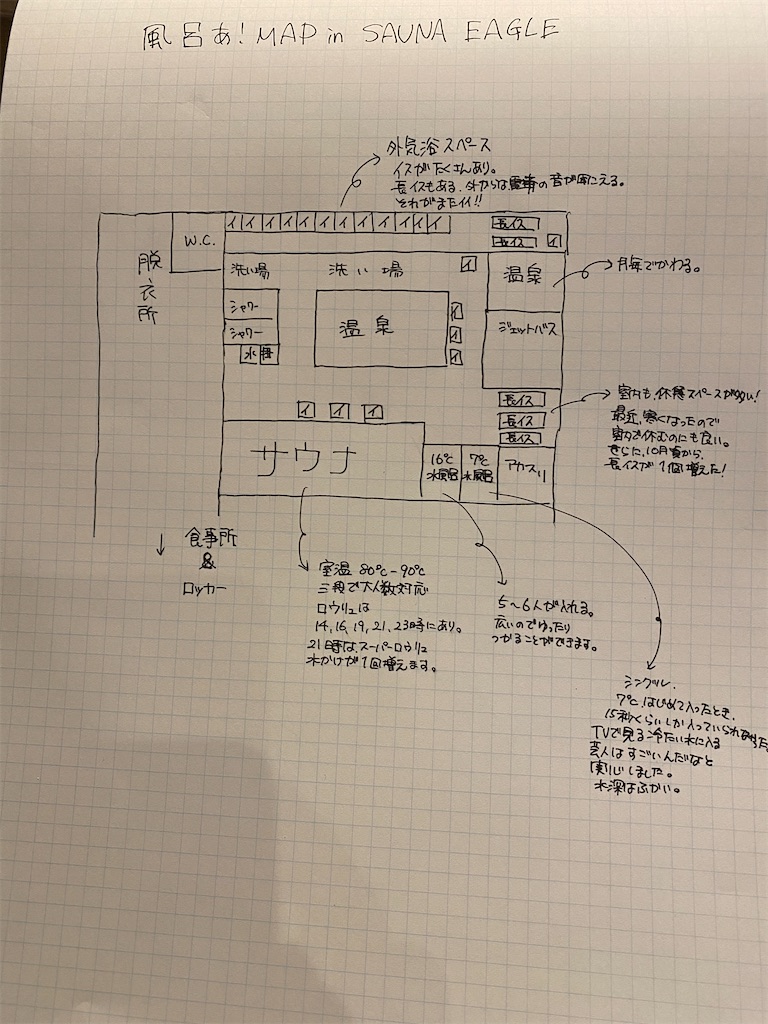 風呂あ! MAP in SAUNA EAGLE
外気浴スペース
イスがたくさんあり。
長イスもある。外からは電車の音が聞こえる。
それがまたイイ!!
イ イ イ イ イ イ イ イ イ イ イ イ イ
長イス
長イス イ
W.C.
脱衣所
洗い場 洗い場 イ
温泉
月毎でかわる。
シャワー
シャワー
水
温泉
イ
イ
イ
ジェットバス
長イス
長イス
長イス
室内も、休憩スペースが多い!
最近、寒くなったので
室内で休むのにも良い。
さらに、10月頃から、
長イスが1個増えた!
イ イ イ
サウナ
16℃
水風呂
7℃
水風呂
アカスリ
↓ 食事所
&
ロッカー
室温 80℃-90℃
三段で大人数対応
ロウリュは
14, 16, 19, 21, 23時にあり。
21時は、スーパーロウリュ
水かけが1回増えます。
5〜6人が入れる。
広いのでゆったり
つかることができます。
シングル。
7℃、はじめて入ったとき、
15秒くらいしか入っていられませんでした。
TVで見る冷たい水に入る
芸人はすごいんだなと
関心しました。
水深はふかい。